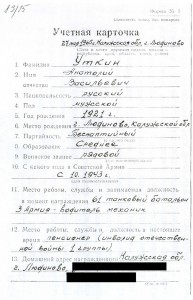 1915
Форма № 4
Учетная карточка
27 мар 1968 Калужской обл. г. Людиново
1. Фамилия Уткин
2. Имя Анатолий
отчество Васильевич
3. Национальность русский
4. Пол мужской
5. Год рождения 1921 г.
6. Место рождения г. Людиново, Калужской обл
7. Партийность Беспартийный
8. Образование Среднее
9. Воинское звание рядовой
10. С какого года в Советской Армии
С 10.1943 г.
11. Место работы, службы и занимаемая должность
в момент награждения 61 танковый батальон
3 Армия - Водитель механик
12. Место работы, службы и занимаемая должность в настоящее
время пенсионер (инвалид отечествен
ной войны 1 группы)
13. Домашний адрес награжденного Калужская обл
г. Людиново,